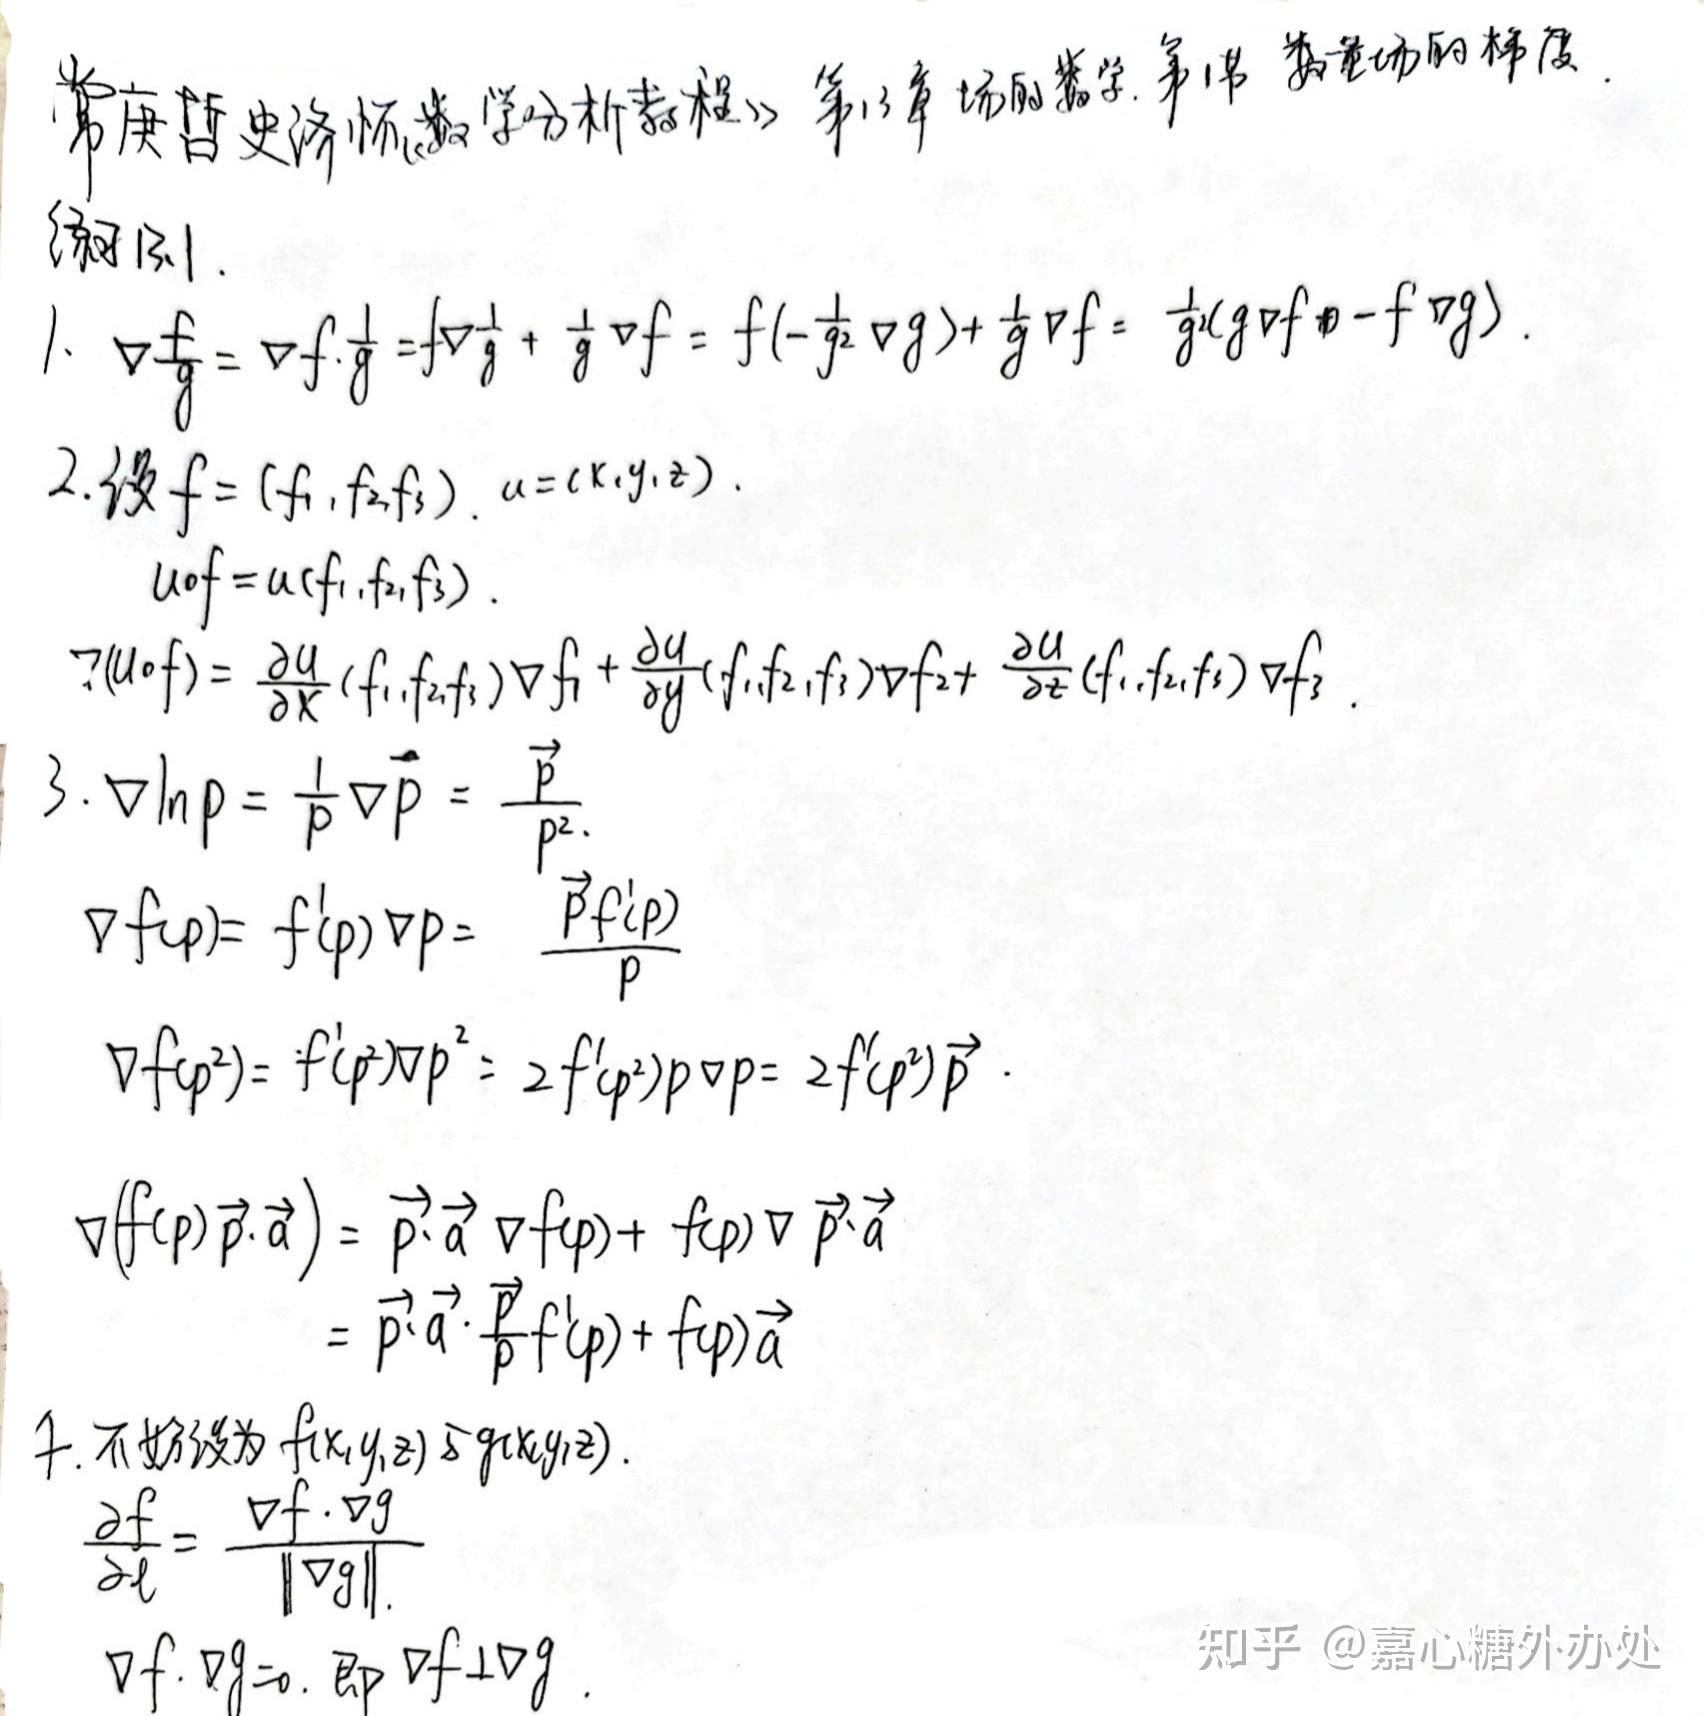 常庚哲史济怀《数学分析教程》 第13章 场的数学. 第1节 数量场的梯度.
练习13.1.
1. ∇f/g = ∇f·1/g = f∇1/g + 1/g ∇f = f(-1/g² ∇g) + 1/g ∇f = 1/g²(g∇f - f∇g).
2. 设 f = (f₁, f₂, f₃). u = (x, y, z).
u∘f = u(f₁, f₂, f₃).
∇(u∘f) = ∂u/∂x (f₁, f₂, f₃)∇f₁ + ∂u/∂y (f₁, f₂, f₃)∇f₂ + ∂u/∂z (f₁, f₂, f₃)∇f₃.
3. ∇ln p = 1/p ∇p⃗ = p⃗/p².
∇f(p) = f'(p)∇p = p⃗f'(p)/p
∇f(p²) = f'(p²)∇p² = 2f'(p²)p∇p = 2f'(p²)p⃗.
∇(f(p)p⃗·a⃗) = p⃗·a⃗ ∇f(p) + f(p)∇ p⃗·a⃗
= p⃗·a⃗·p⃗/p f'(p) + f(p)a⃗
4. 不妨设为 f(x, y, z) 与 g(x, y, z).
∂f/∂l = ∇f·∇g/‖∇g‖.
∇f·∇g = 0. 即 ∇f⊥∇g.
知乎 @嘉心糖外办处